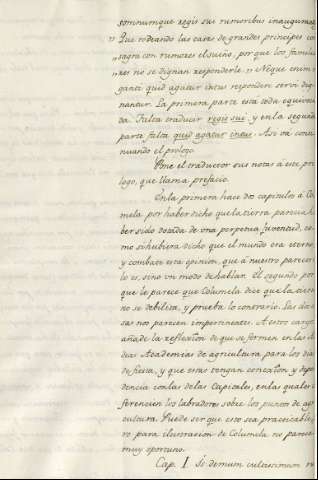 somnumque regis sue rumoribus inaugurat
" Que rodeando las casas de grandes principes con
" sagra con rumores el sueño, por que los famili
" res no se dignan responderle. " Neque enim
ganti quid agatur intus responderi servi dig
nantur. La primera parte esta toda equivoca
da. Falta traducir regis sue y en la segunda
parte falta quid agatur intus. Asi va conti
nuando el prologo.
Pone el traductor sus notas à este pro
logo, que llama prefacio.
En la primera hace dos capitulos à Co
mela por haber dicho que la tierra parecia ha
ber sido dotada de una perpetua juventud, co
mo si hubiera dicho que el mundo era eterno,
y combate esta opinion, que à nuestro parecer
lo es, sino un modo de hablar. El segundo por
que le parece que Columela dice que la tierra
no se debilita, y prueba lo contrario. Las dos
sas nos parecen impertinentes. A estos cargos
añade la reflexion de que se formen en las al
deas Academias de agricultura para los dias
de fiesta, y que estas tengan conexion y depen
dencia con las de las Capitales, en las quales
ferencien los labradores sobre los puntos de agri
cultura. Puede ser que esto sea practicable, pe
ro para ilustracion de Columela no parece
muy oportuno.
Cap. I Is demum cultissimum ru